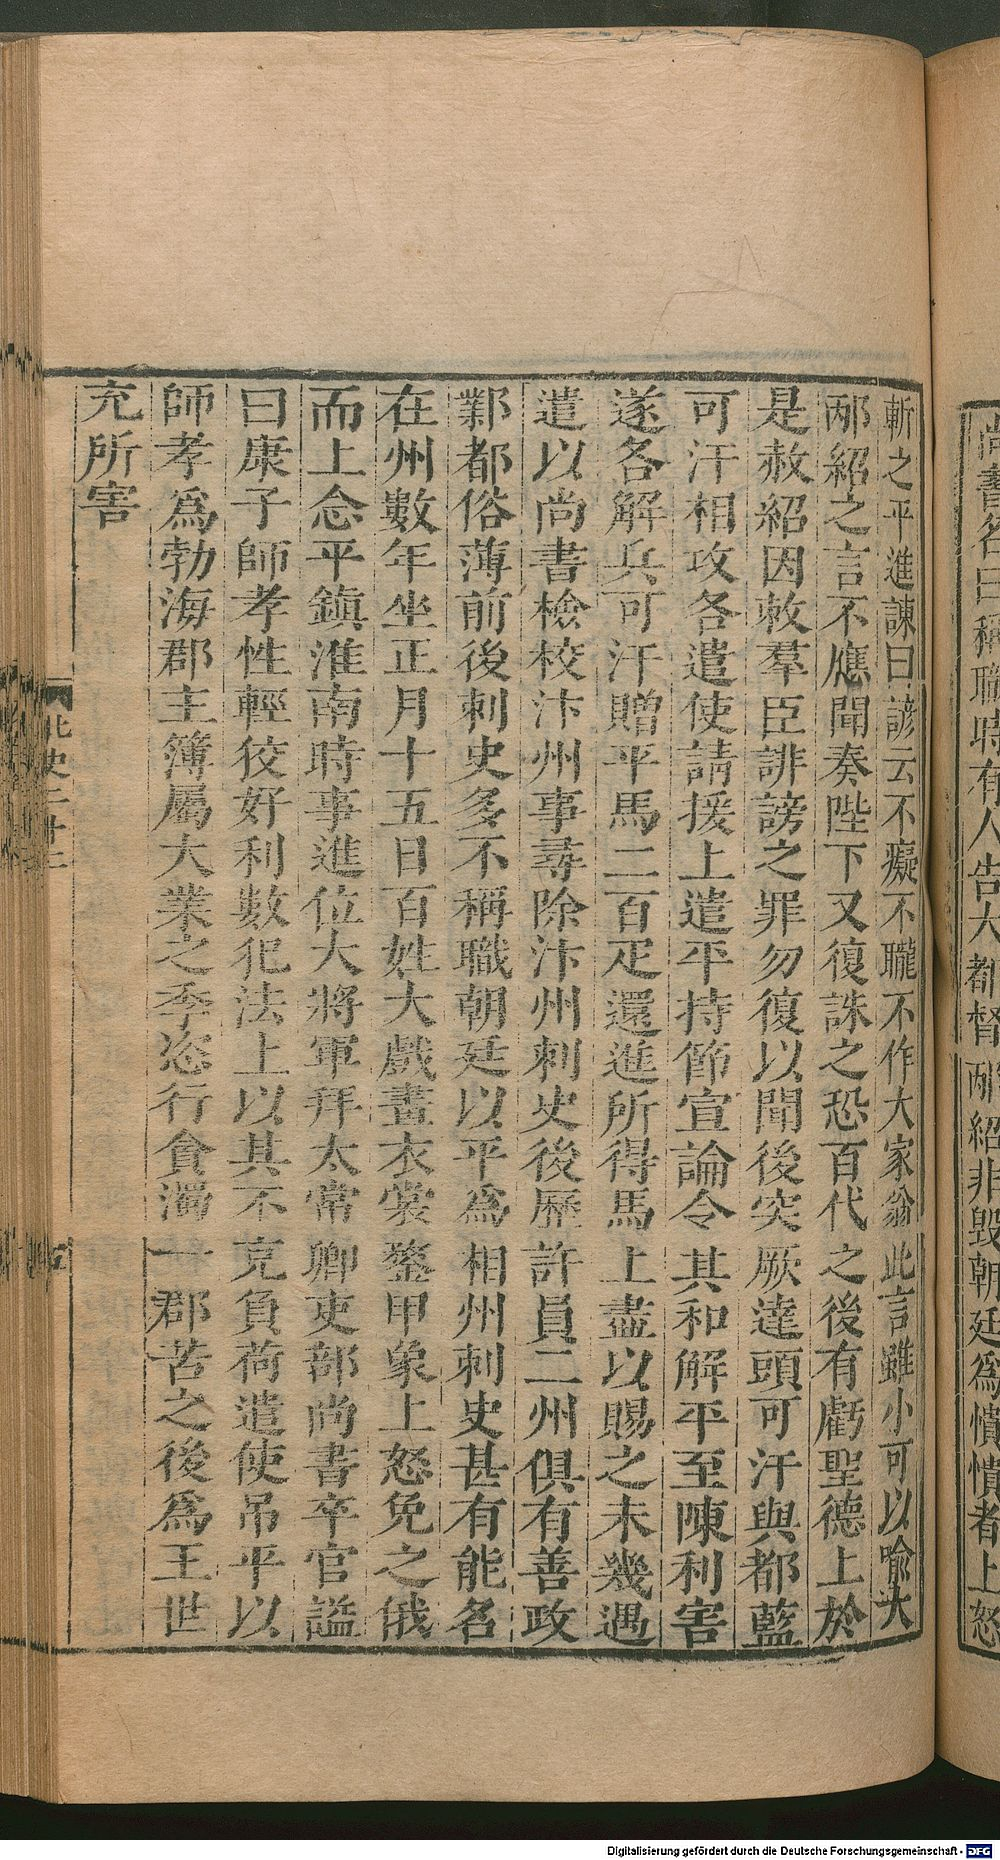 尚書名曰稱職時有人告大都督邴紹非毀朝廷爲憒憒者上怒
斬之平進諫曰諺云不癡不聾不作大家翁此言雖小可以喻大
邴紹之言不應聞奏陛下又復誅之恐百代之後有虧聖德上於
是赦紹因敕羣臣誹謗之罪勿復以聞後突厥達頭可汗與都藍
可汗相攻各遣使請援上遣平持節宣論令其和解平至陳利害
遂各解兵可汗贈平馬二百疋還進所得馬上盡以賜之未幾遇
遣以尚書檢校汴州事尋除汴州刺史後歷許貝二州俱有善政
鄴都俗薄前後刺史多不稱職朝廷以平爲相州刺史甚有能名
在州數年坐正月十五日百姓大戲畫衣裳鍪甲象上怒免之俄
而上念平鎭淮南時事進位大將軍拜太常卿吏部尚書卒官謚
曰康子師孝性輕狡好利數犯法上以其不克負荷遣使吊平以
師孝爲勃海郡主簿屬大業之季恣行貪濁一郡苦之後爲王世
充所害
北史三十二
Digitalisierung gefördert durch die Deutsche Forschungsgemeinschaft - DFG